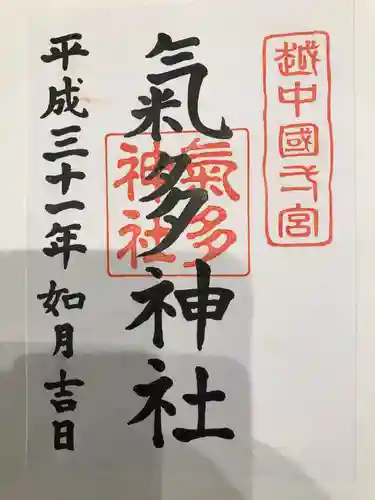 越中國一宮
氣多神社
氣多神社
平成三十一年如月吉日